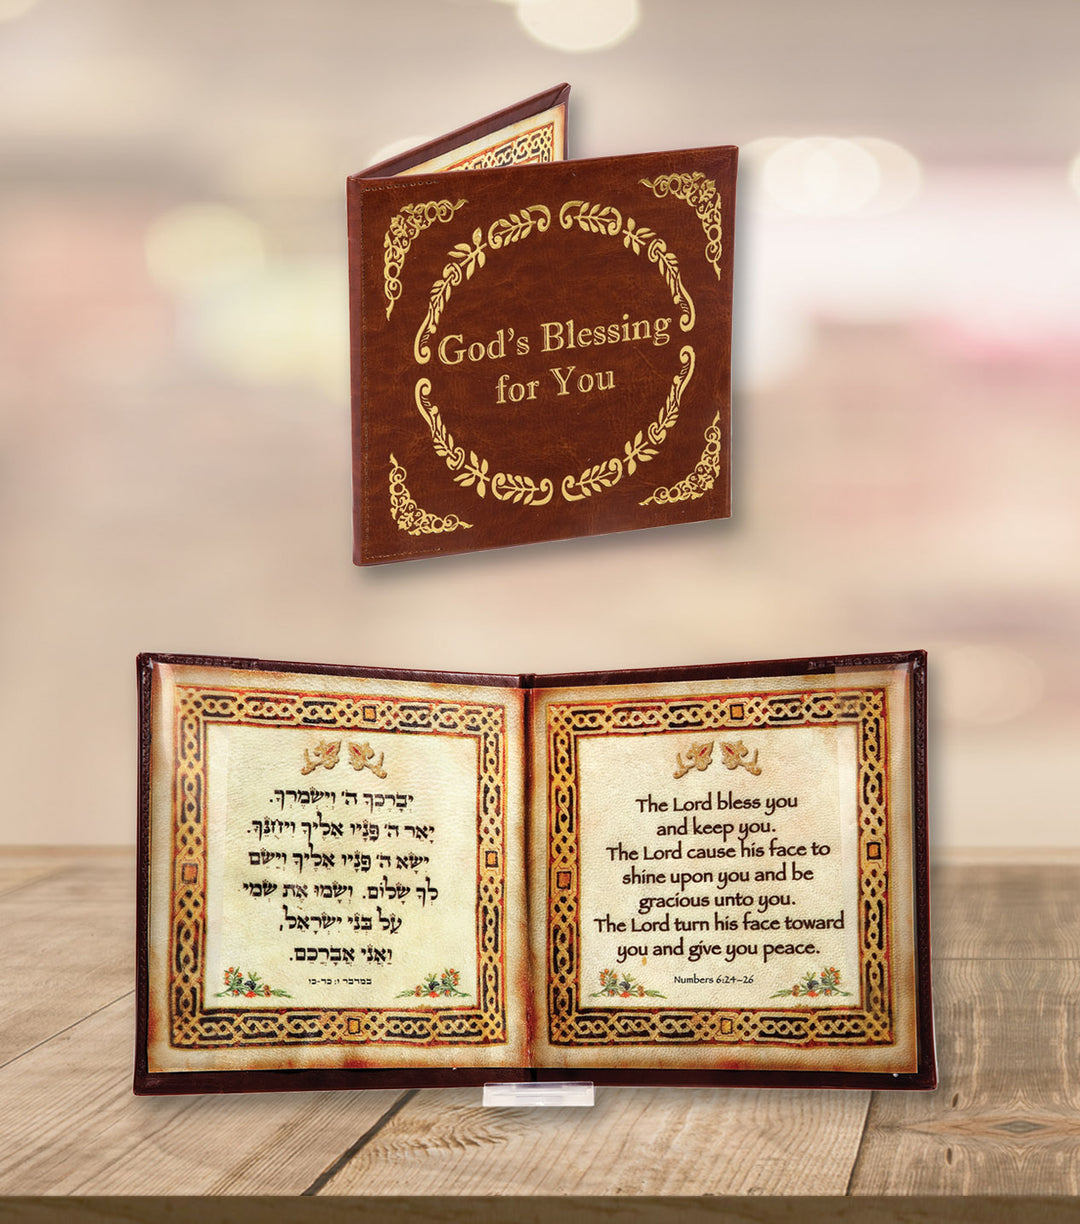 God's Blessing
for You
יְבָרֶכְךָ ה' וְיִשְׁמְרֶךָ.
יָאֵר ה' פָּנָיו אֵלֶיךָ וִיחֻנֶּךָּ.
יִשָּׂא ה' פָּנָיו אֵלֶיךָ וְיָשֵׂם
לְךָ שָׁלוֹם. וְשָׂמוּ אֶת שְׁמִי
עַל בְּנֵי יִשְׂרָאֵל,
וַאֲנִי אֲבָרְכֵם.
במדבר ו: כד-כו
The Lord bless you
and keep you.
The Lord cause his face to
shine upon you and be
gracious unto you.
The Lord turn his face toward
you and give you peace.
Numbers 6:24–26